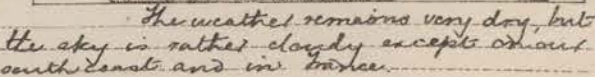 The weather remains very dry, but
the sky is rather cloudy except on our
south coast and in France.